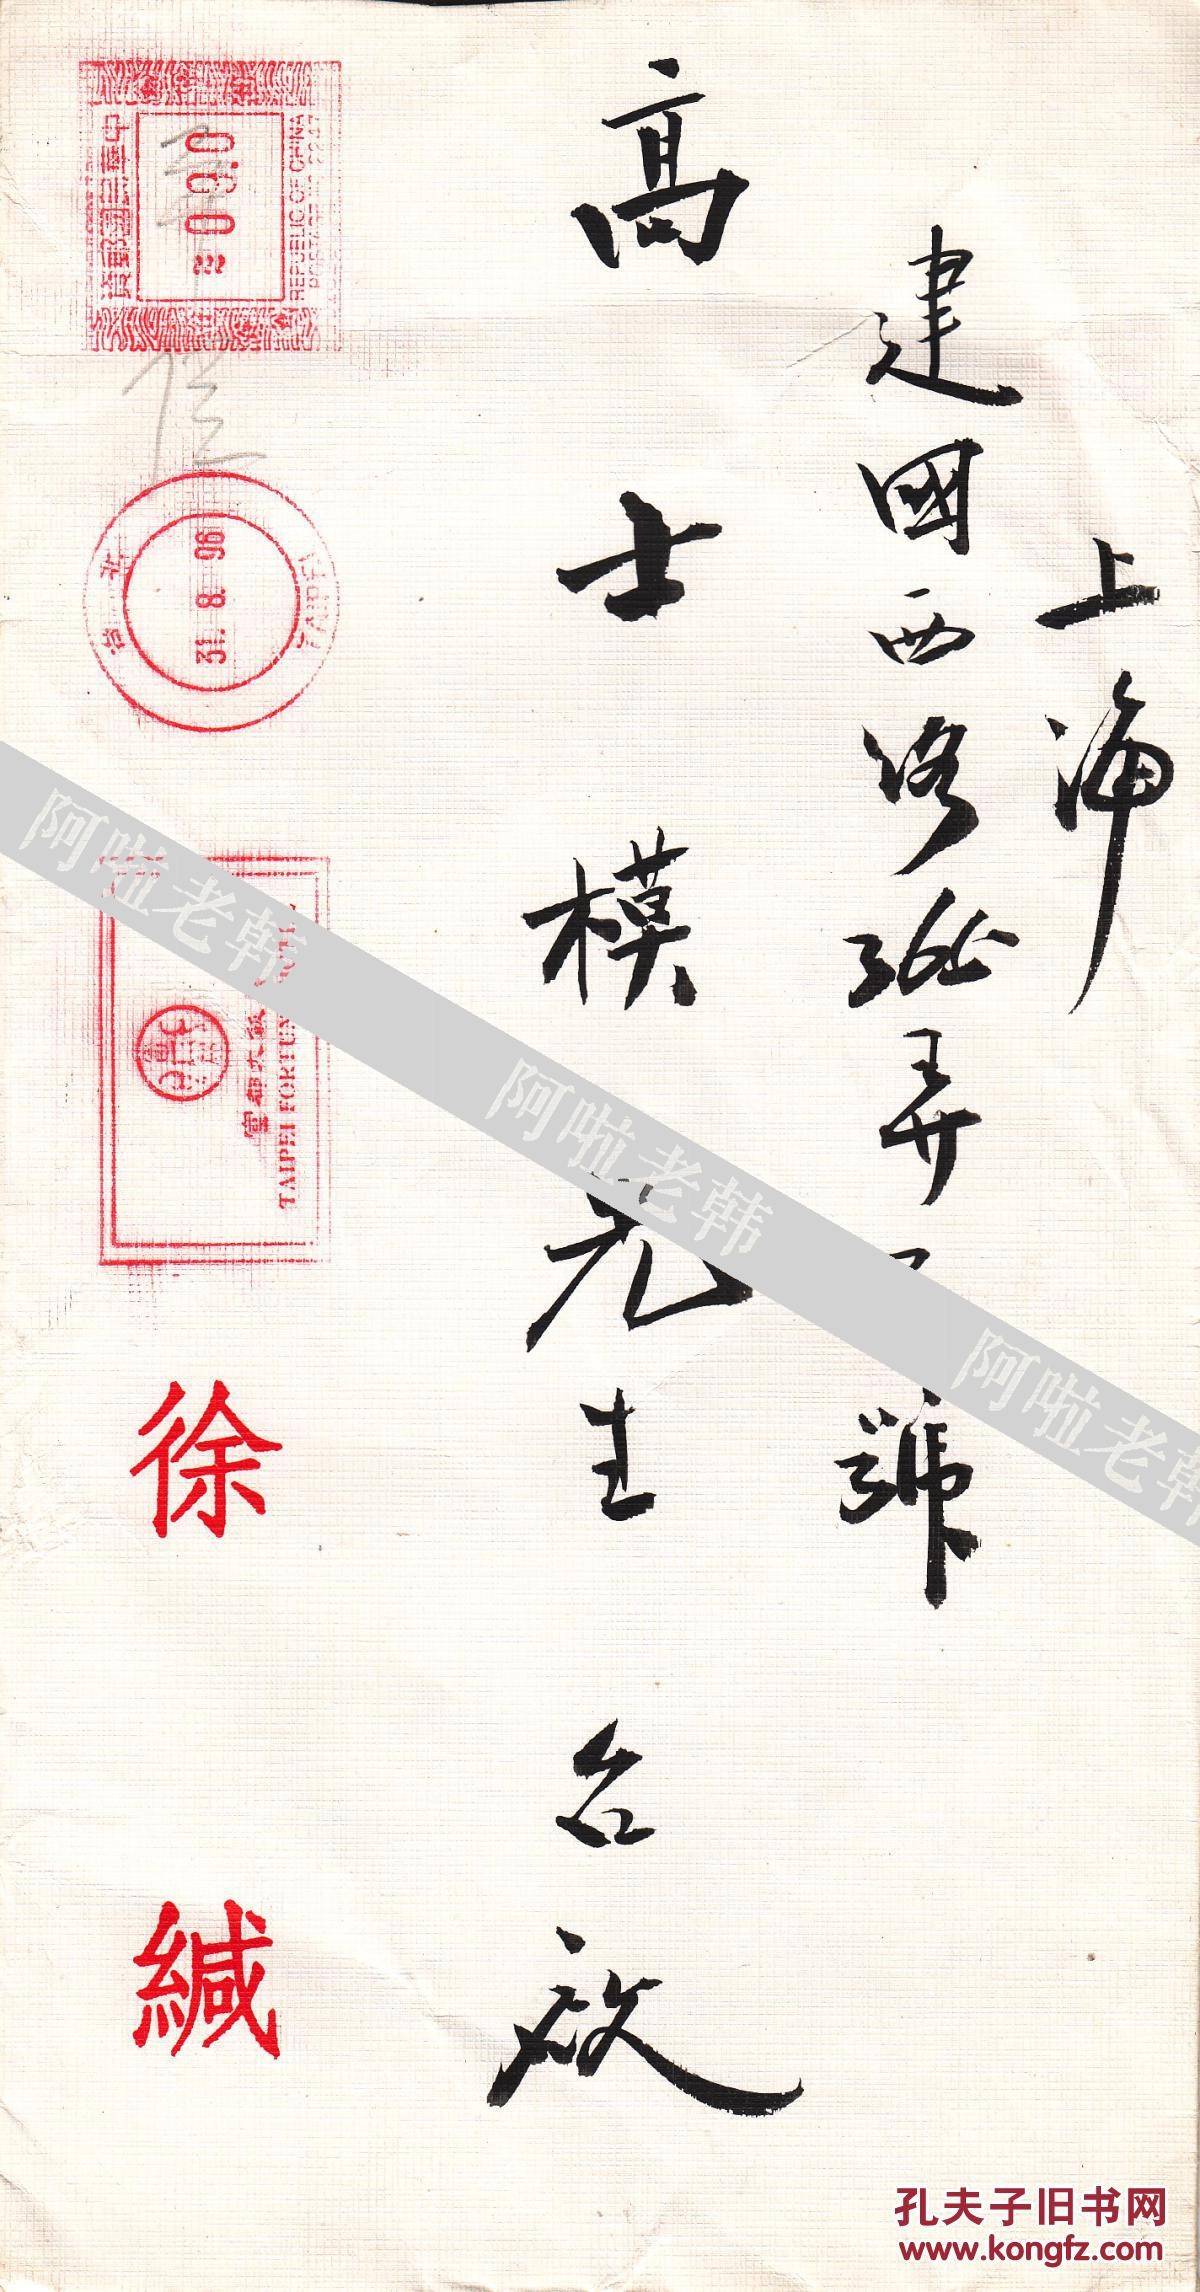 上海
建國西路
弄
號
高士模先生 台啟
徐 緘
中華民國郵資
090
REPUBLIC OF CHINA
台北
31. 8. 96
TAIPEI
富都大飯
TAIPEI FORTUN
阿啦老韩
阿啦老韩
阿啦老韩
孔夫子旧书网
www.kongfz.com